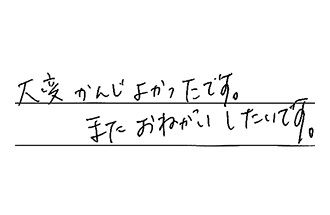 大変かんじよかったです。
またおねがいしたいです。